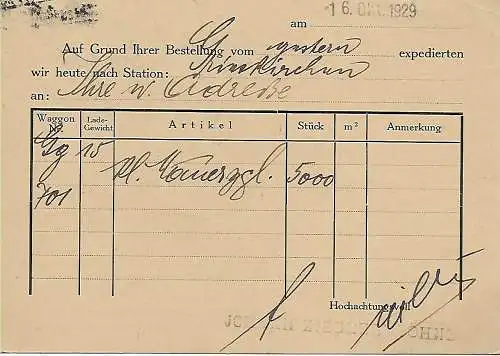 am 16. Okt. 1929
Auf Grund Ihrer Bestellung vom gestern expedierten
wir heute nach Station:
an: Ihre w. Adresse
Waggon Nr. Lade-Gewicht Artikel Stück m³ Anmerkung
Gg 15 kl. Mauerzgl. 5000
701
Hochachtungsvoll